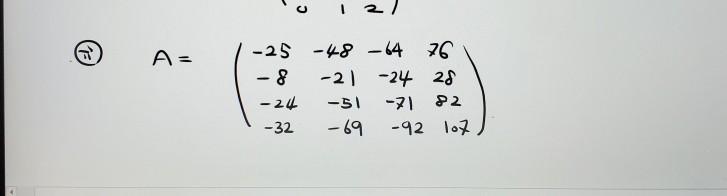 0 1 2)
(ii) A =
-25 -48 -64 76
-8 -21 -24 28
-24 -51 -71 82
-32 -69 -92 107